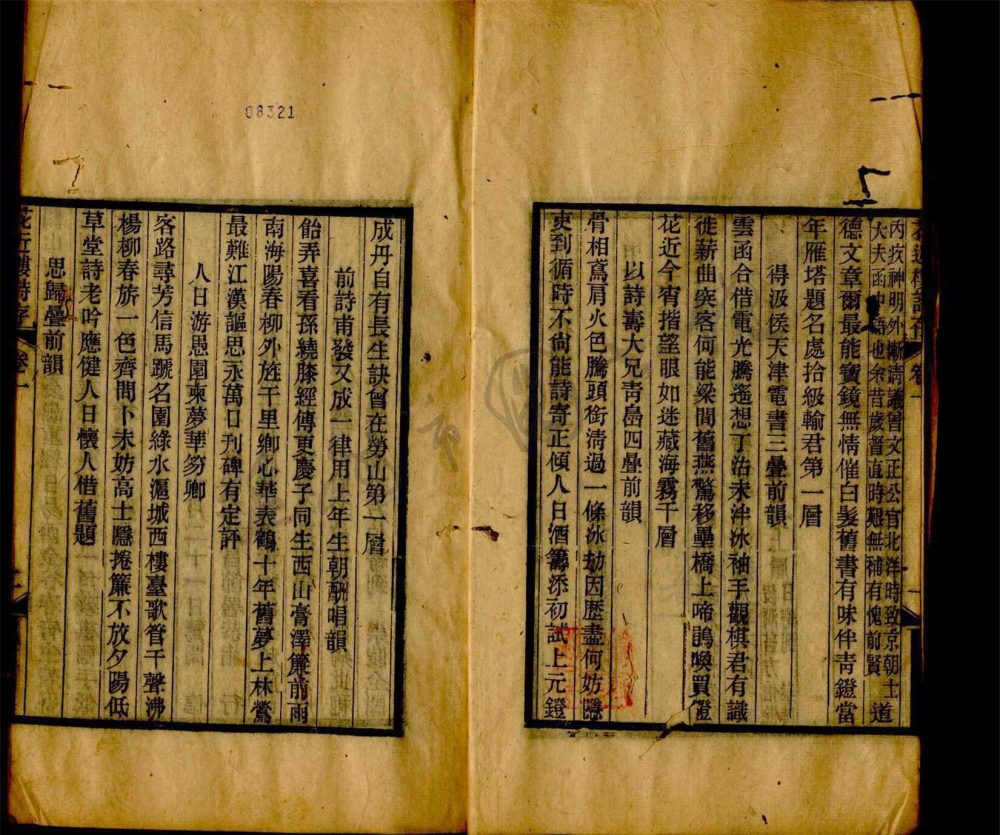 花近樓詩存 卷一
內疚神明外慚清議曾文正公官北洋時致京朝士
大夫函中語也余昔歲督直時艱無補有愧前賢
道
德文章爾最能寶鏡無情催白髮舊書有味伴青鐙當
年雁塔題名處拾級輸君第一層
得汲侯天津電書三疊前韻
雲函合借電光騰遙想丁沽未泮冰袖手觀棋君有識
徙薪曲突客何能梁間舊燕驚移壘橋上啼鵑喚買燈
花近今宵揩望眼如迷藏海霧千層
以詩壽大兄靑島四疊前韻
骨相鳶肩火色騰頭銜淸過一條冰劫因歷盡何妨隱
吏到循時不尙能詩寄正傾人日酒籌添初試上元鐙
成丹自有長生訣曾在勞山第一層
前詩甫發又成一律用上年生朝酬唱韻
飴弄喜看孫繞膝經傳更慶子同生西山膏澤簾前雨
南海陽春柳外旌千里鄉心華表鶴十年舊夢上林鶯
最難江漢謳思永萬口刊碑有定評
人日游愚園柬夢華笏卿
客路尋芳信馬蹏名園綠水滬城西樓臺歌管千聲沸
楊柳春旂一色齊閒卜未妨高士隱捲簾不放夕陽低
草堂詩老吟應健人日懷人借舊題
思歸疊前韻
花近樓詩存 卷一
08321